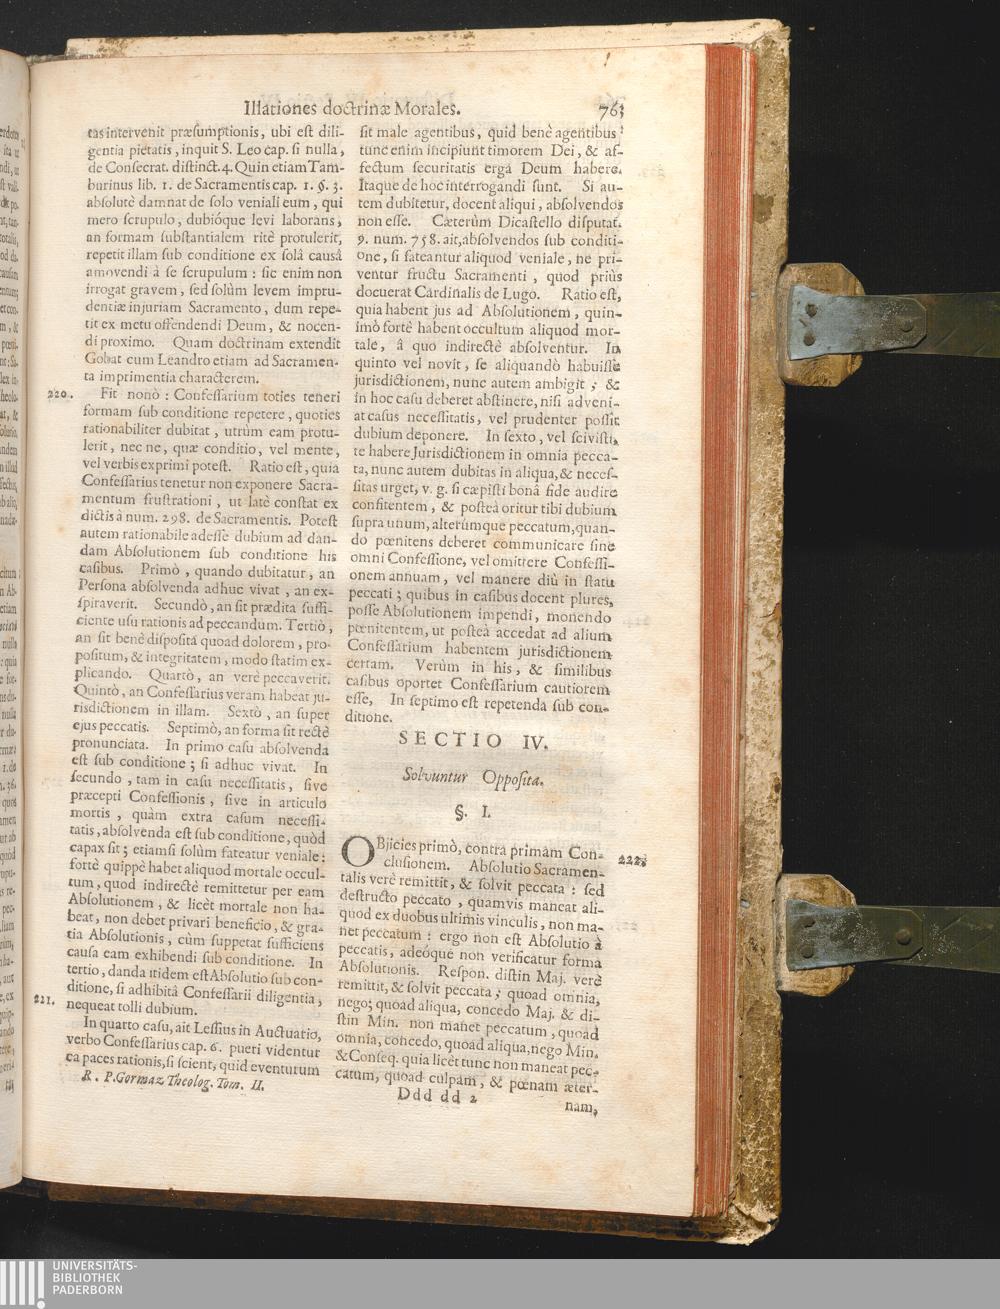 Illationes doctrinæ Morales.
763
tas intervenit præsumptionis, ubi est dili-
gentia pietatis, inquit S. Leo cap. si nulla,
de Consecrat. distinct. 4. Quin etiam Tam-
burinus lib. 1. de Sacramentis cap. 1. §. 3.
absolutè damnat de solo veniali eum, qui
mero scrupulo, dubióque levi laborans,
an formam substantialem ritè protulerit,
repetit illam sub conditione ex solâ causâ
amovendi à se scrupulum: sic enim non
irrogat gravem, sed solùm levem impru-
dentiæ injuriam Sacramento, dum repe-
tit ex metu offendendi Deum, & nocen-
di proximo. Quam doctrinam extendit
Gobat cum Leandro etiam ad Sacramen-
ta imprimentia characterem.
220.
Fit nonò: Confessarium toties teneri
formam sub conditione repetere, quoties
rationabiliter dubitat, utrùm eam protu-
lerit, nec ne, quæ conditio, vel mente,
vel verbis exprimi potest. Ratio est, quia
Confessarius tenetur non exponere Sacra-
mentum frustrationi, ut latè constat ex
dictis à num. 298. de Sacramentis. Potest
autem rationabile adesse dubium ad dan-
dam Absolutionem sub conditione his
casibus. Primò, quando dubitatur, an
Persona absolvenda adhuc vivat, an ex-
spiraverit. Secundò, an sit prædita suffi-
ciente usu rationis ad peccandum. Tertiò,
an sit benè disposita quoad dolorem, pro-
positum, & integritatem, modo statim ex-
plicando. Quartò, an verè peccaverit.
Quintò, an Confessarius veram habeat ju-
risdictionem in illam. Sextò, an super
ejus peccatis. Septimò, an forma sit rectè
pronunciata. In primo casu absolvenda
est sub conditione; si adhuc vivat. In
secundo, tam in casu necessitatis, sive
præcepti Confessionis, sive in articulo
mortis, quàm extra casum necessi-
tatis, absolvenda est sub conditione, quòd
capax sit; etiamsi solùm fateatur veniale:
fortè quippè habet aliquod mortale occul-
tum, quod indirectè remittetur per eam
Absolutionem, & licèt mortale non ha-
beat, non debet privari beneficio, & gra-
tia Absolutionis, cùm suppetat sufficiens
causa eam exhibendi sub conditione. In
tertio, danda itidem est Absolutio sub con-
ditione, si adhibitâ Confessarii diligentia,
nequeat tolli dubium.
221.
In quarto casu, ait Lessius in Auctuario,
verbo Confessarius cap. 6. pueri videntur
ea paces rationis, si scient, quid eventurum
R. P. Gormaz Theolog. Tom. II.
sit male agentibus, quid benè agentibus:
tunc enim incipiunt timorem Dei, & af-
fectum securitatis erga Deum habere.
Itaque de hoc interrogandi sunt. Si au-
tem dubitetur, docent aliqui, absolvendos
non esse. Cæterùm Dicastello disputat.
9. num. 758. ait, absolvendos sub conditi-
one, si fateantur aliquod veniale, ne pri-
ventur fructu Sacramenti, quod priùs
docuerat Cardinalis de Lugo. Ratio est,
quia habent jus ad Absolutionem, quin-
imò fortè habent occultum aliquod mor-
tale, â quo indirectè absolventur. In
quinto vel novit, se aliquandò habuisse
jurisdictionem, nunc autem ambigit; &
in hoc casu deberet abstinere, nisi adveni-
at casus necessitatis, vel prudenter possit
dubium deponere. In sexto, vel scivisti,
te habere Jurisdictionem in omnia pecca-
ta, nunc autem dubitas in aliqua, & neces-
sitas urget, v. g. si cæpisti bonâ fide audire
confitentem, & posteà oritur tibi dubium
supra unum, alterúmque peccatum, quan-
do pœnitens deberet communicare sine
omni Confessione, vel omittere Confessi-
onem annuam, vel manere diù in statu
peccati; quibus in casibus docent plures,
posse Absolutionem impendi, monendo
pœnitentem, ut posteà accedat ad alium
Confessarium habentem jurisdictionem
certam. Verùm in his, & similibus
casibus oportet Confessarium cautiorem
esse, In septimo est repetenda sub con-
ditione.
SECTIO IV.
Solvuntur Opposita.
§. I.
OBjicies primò, contra primam Con-
clusionem. Absolutio Sacramen-
talis verè remittit, & solvit peccata: sed
destructo peccato, quamvis maneat ali-
quod ex duobus ultimis vinculis, non ma-
net peccatum: ergo non est Absolutio à
peccatis, adeóque non verificatur forma
Absolutionis. Respon. distin Maj. verè
remittit, & solvit peccata; quoad omnia,
nego; quoad aliqua, concedo Maj. & di-
stin Min. non manet peccatum, quoad
omnia, concedo, quoad aliqua, nego Min.
& Conseq. quia licèt tunc non maneat pec-
catum, quoad culpam, & pœnam æter-
Ddd dd 2
nam,
UNIVERSITÄTS-
BIBLIOTHEK
PADERBORN